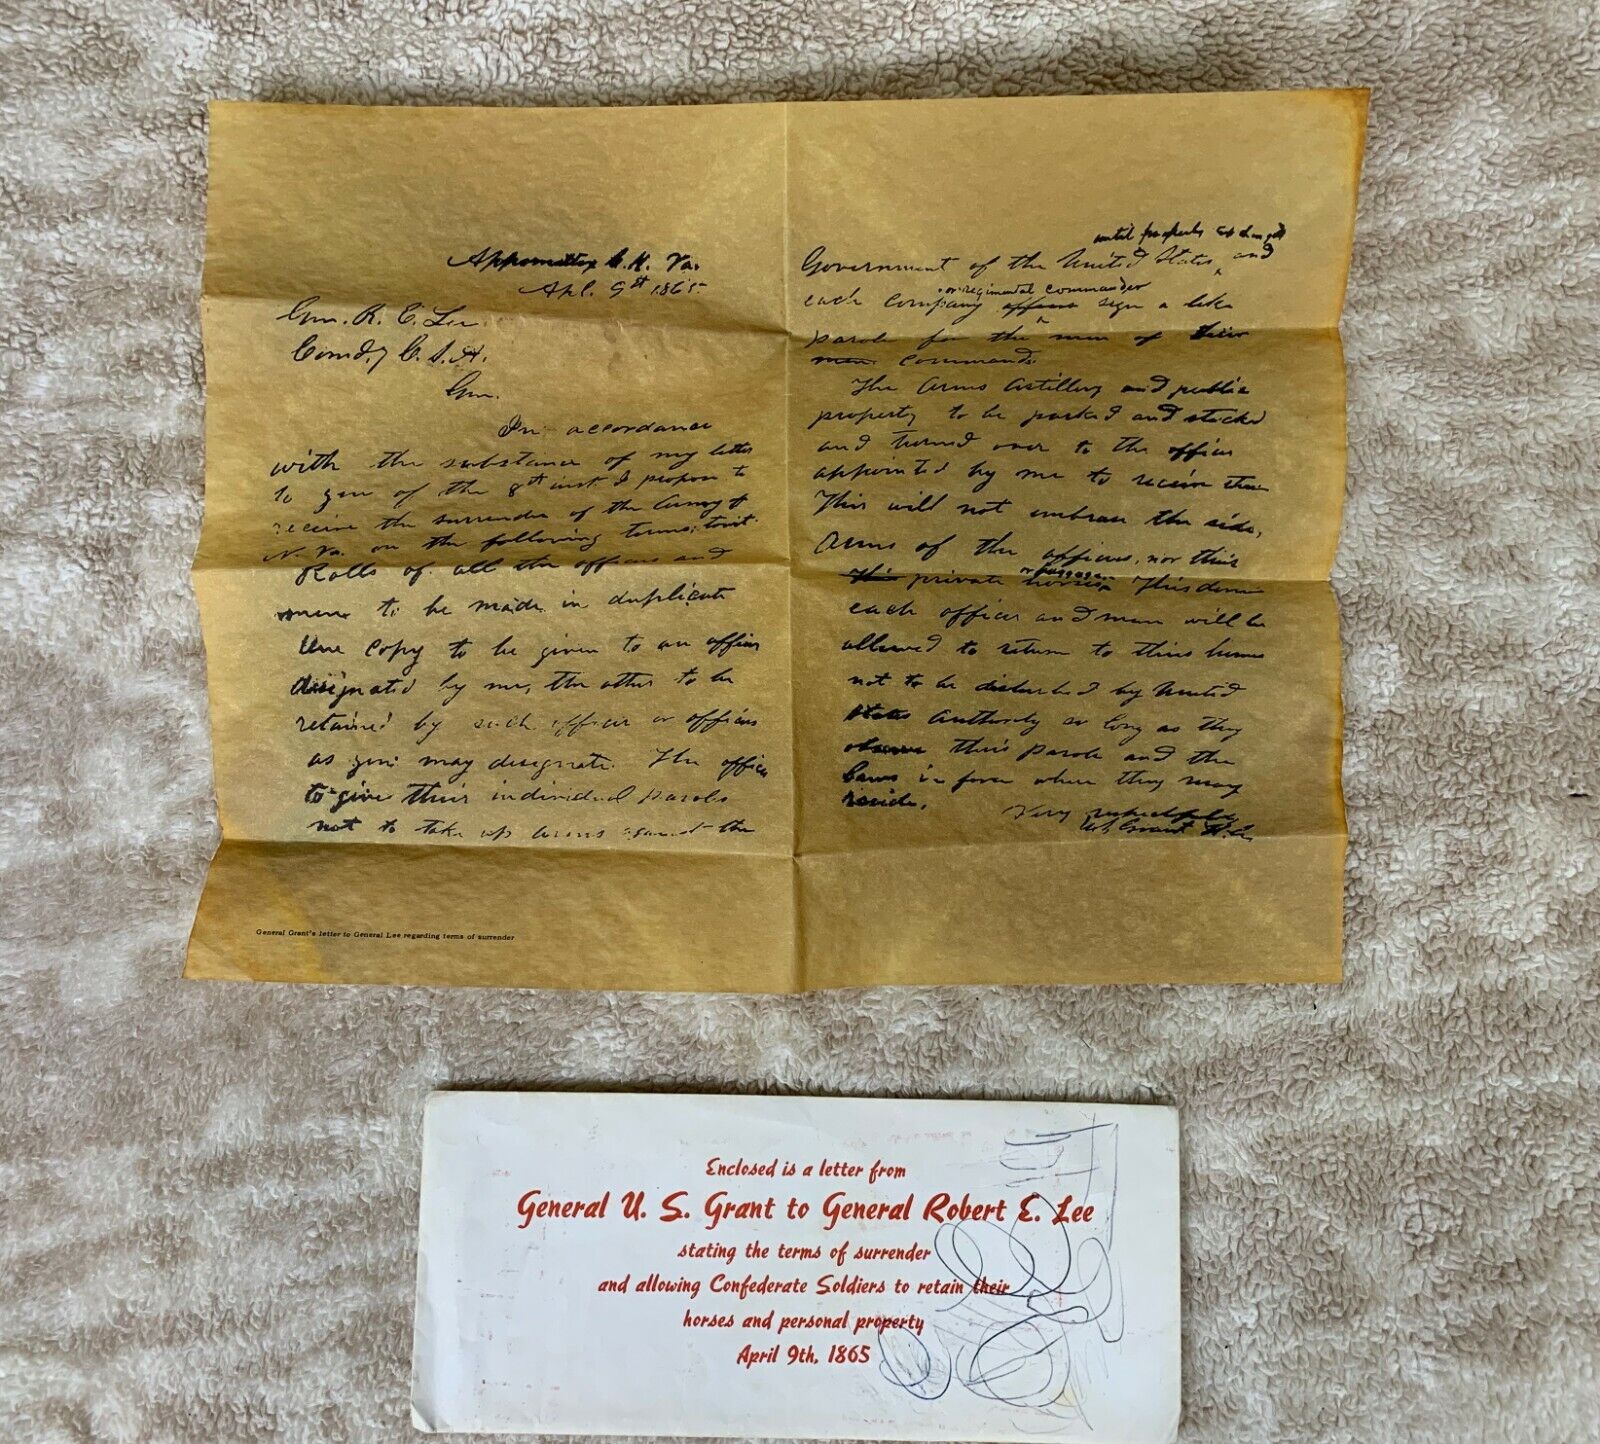 Appomattox C. H. Va.
Apl. 9th 1865.
Gen. R. E. Lee.
Comd.g C. S. A.
Gen.
In accordance
with the substance of my letter
to you of the 8th inst. I propose to
receive the surrender of the Army of
N. Va. on the following terms; towit:
Rolls of all the officers and
men to be made in duplicate
One copy to be given to an officer
designated by me, the other to be
retained by such officer or officers
as you may designate. The officers
to give their individual paroles
not to take up arms against the
General Grant's letter to General Lee regarding terms of surrender
until properly
Government of the United States and
or regimental commander
each company officer sign a like
parole for the men of their
men commands.
The Arms Artillery and public
property to be parked and stacked
and turned over to the officer
appointed by me to receive them
This will not embrace the side,
Arms of the officers, nor their
or baggage
This private horses This done
each officer and man will be
allowed to return to their homes
not to be disturbed by United
States Authority so long as they
observe their parole and the
laws in force where they may
reside.
Very respectfully
U. S. Grant Lt. Gn.
Enclosed is a letter from
General U. S. Grant to General Robert E. Lee
stating the terms of surrender
and allowing Confederate Soldiers to retain their
horses and personal property
April 9th, 1865